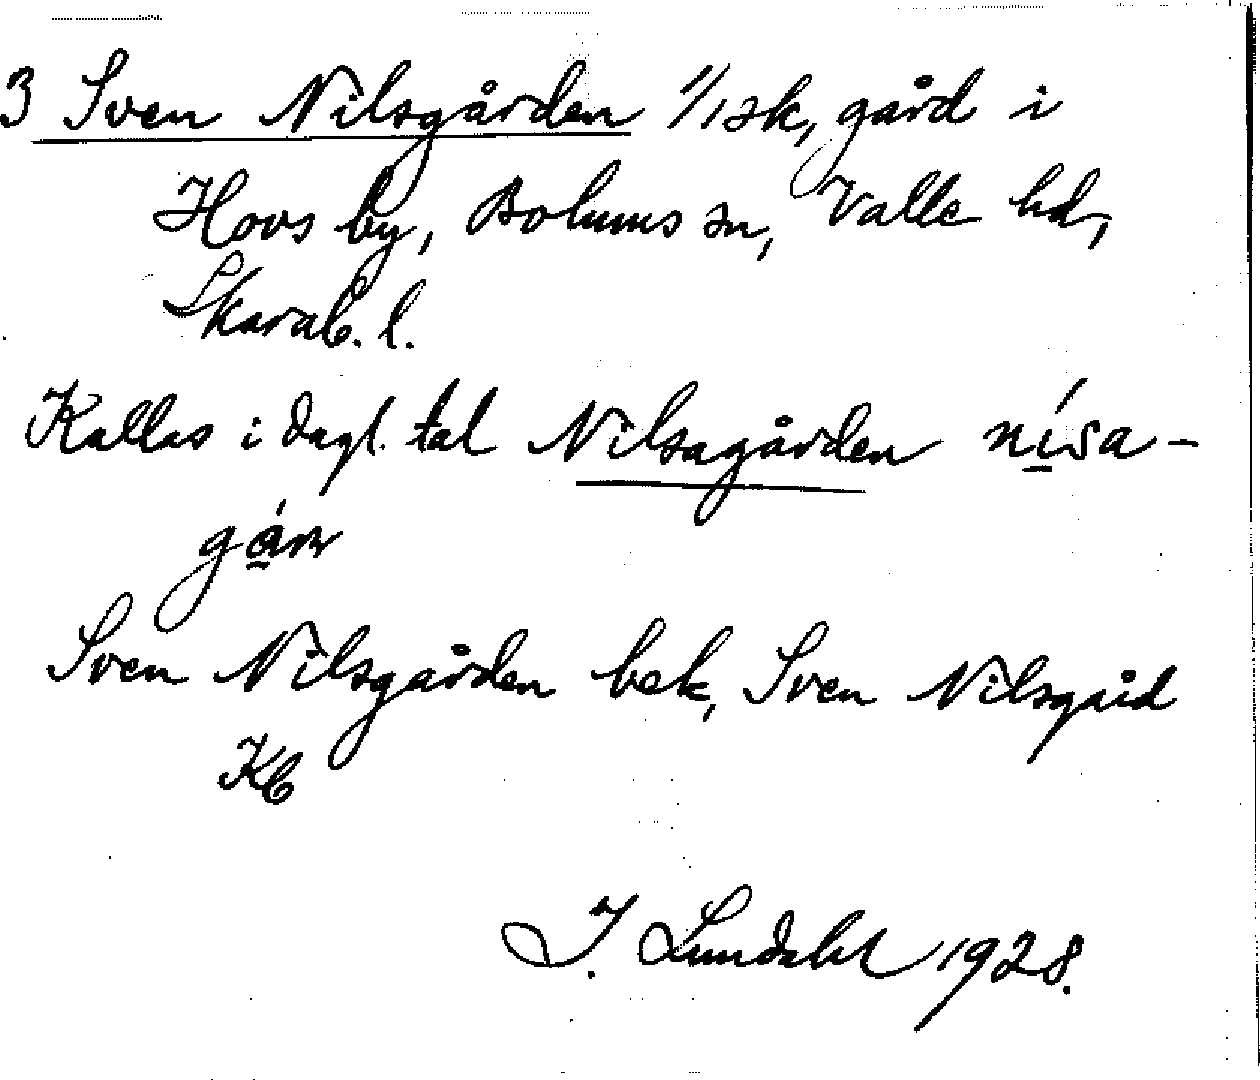 3 Sven Nilsgården 1/1 sk, gård i
Hovs by, Bolums sn, Valle hd,
Skarab. l.
Kallas i dagl. tal Nilsagården nísa-
gán
Sven Nilsgården bek, Sven Nilsgård
Kb
I. Lundahl 1928.